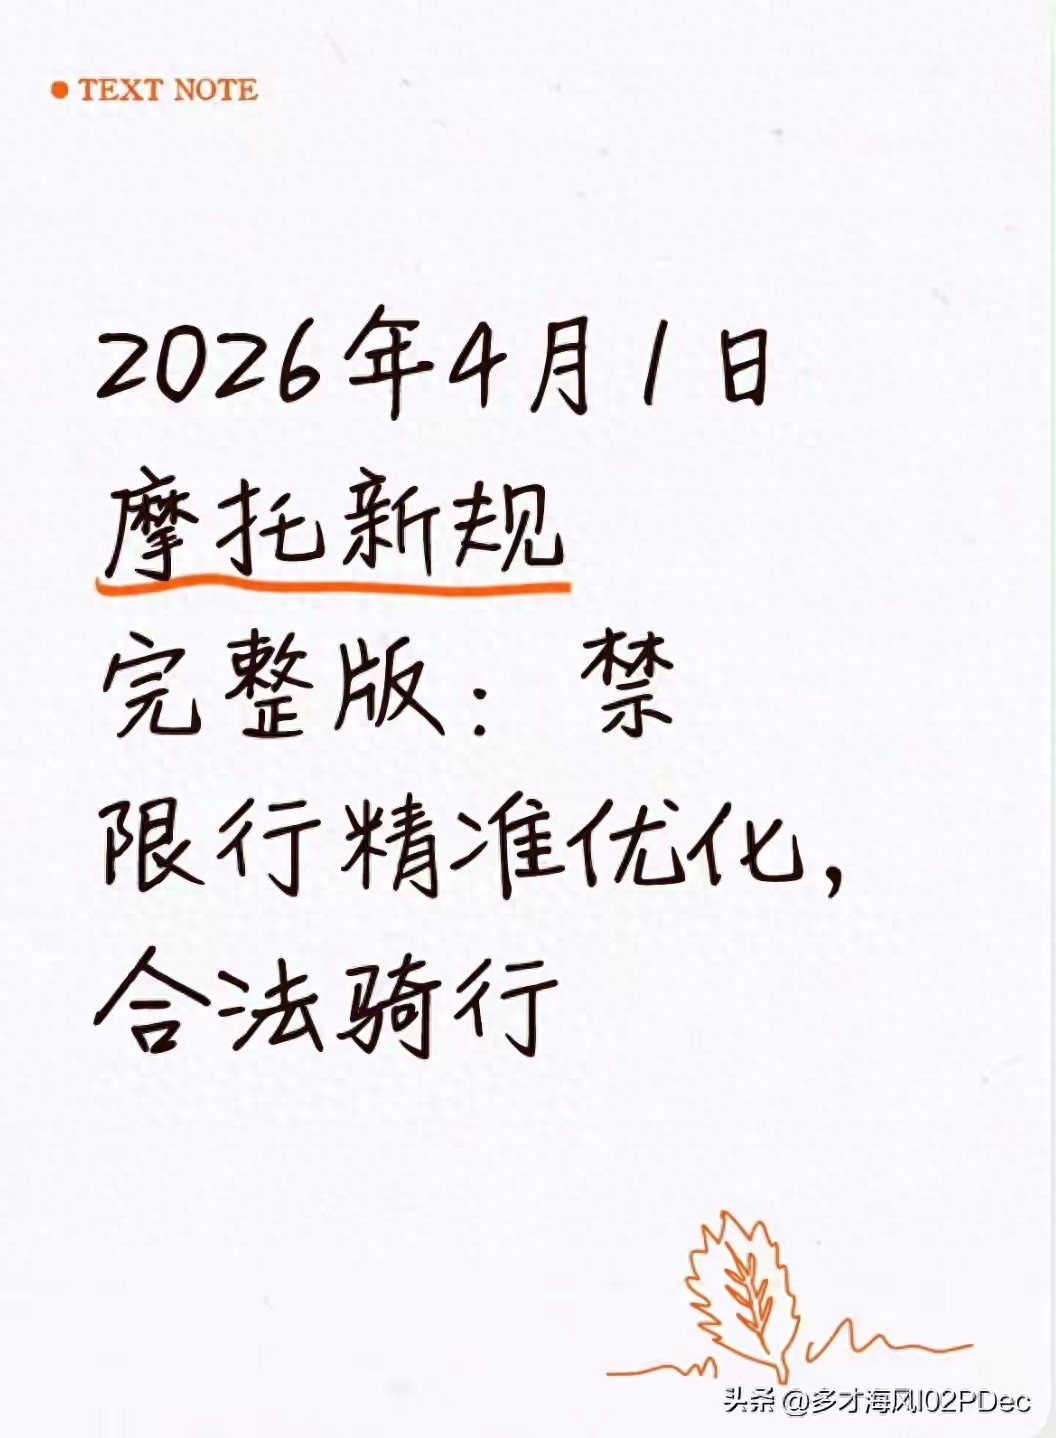 TEXT NOTE
2026年4月1日
摩托新规
完整版：禁
限行精准优化，
合法骑行
头条 @多才海风I02PDec